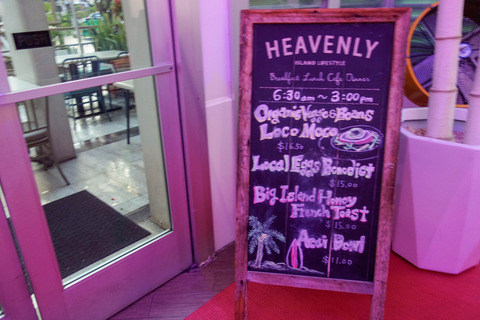 HEAVENLY
ISLAND LIFESTYLE
Breakfast Lunch Cafe Dinner
6:30am ~ 3:00pm
Organic Veggie & Beans
Loco Moco
$16.50
Local Eggs Benedict
$15.00
Big Island Honey
French Toast
$15.00
Acai Bowl
$11.00